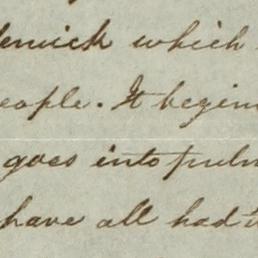 derwick which
eople. It begin
goes into pulm
have all had it